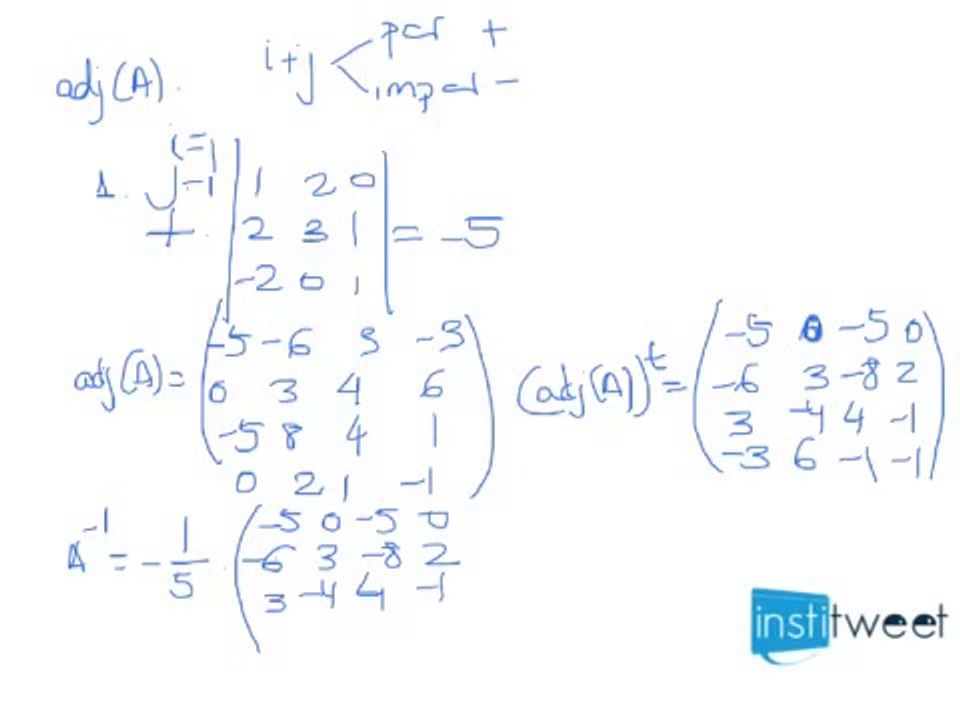 adj(A). i+j < par +
impar -
i=1
1. j=1 | 1 2 0 |
+ | 2 3 1 | = -5
| -2 0 1 |
adj(A) = ( -5 -6 3 -3
0 3 4 6
-5 8 4 1
0 2 1 -1 )
(adj(A))^t = ( -5 0 -5 0
-6 3 -8 2
3 -4 4 -1
-3 6 -1 -1 )
A^-1 = - 1/5 . ( -5 0 -5 0
-6 3 -8 2
3 -4 4 -1
institweet